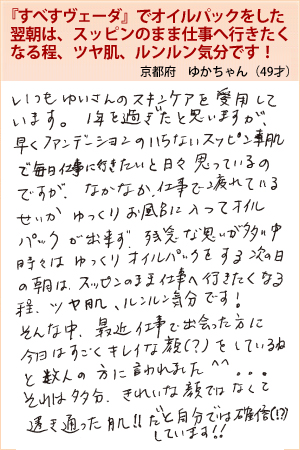 『すべすべヴェーダ』でオイルパックをした
翌朝は、スッピンのまま仕事へ行きたく
なる程、ツヤ肌、ルンルン気分です！
京都府　ゆかちゃん（49才）
いつもゆいさんのスキンケアを愛用して
います。1年を過ぎたと思いますが、
早くファンデーションのいらないスッピン素肌
で毎日仕事に行きたいと日々思っているの
ですが、なかなか仕事で疲れている
せいか ゆっくりお風呂に入ってオイル
パックが出来ず、残念な思いが多い中
時々は ゆっくりオイルパックをする次の日
の朝は、スッピンのまま仕事へ行きたくなる
程、ツヤ肌、ルンルン気分です！
そんな中、最近仕事で出会った方に
今日はすごくキレイな顔(？)をしているね
と数人の方に言われました^^...
それは多分、きれいな顔ではなくて
透き通った肌!!だと自分では確信(!?)
しています!!